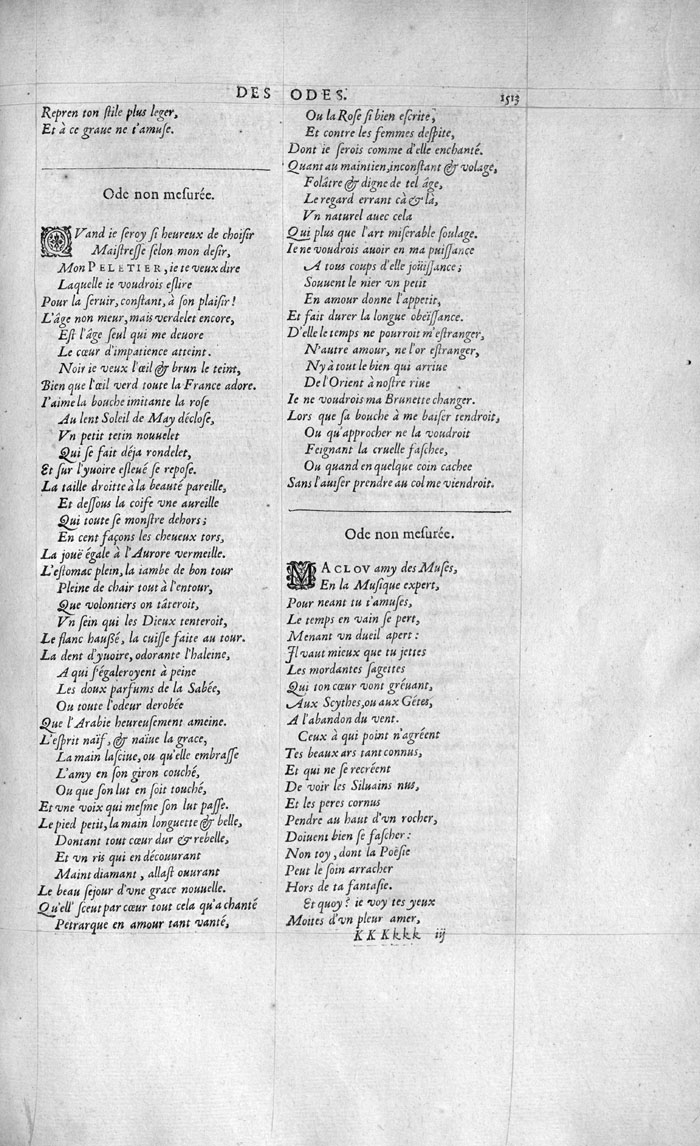 DES ODES. 1513
Repren ton ſtile plus leger,
Et à ce graue ne t'amuſe.
Ode non meſurée.
QVand ie ſeroy ſi heureux de choiſir
Maiſtreſſe ſelon mon deſir,
Mon PELETIER, ie te veux dire
Laquelle ie voudrois eſlire
Pour la ſeruir, conſtant, à ſon plaiſir!
L'âge non meur, mais verdelet encore,
Eſt l'âge ſeul qui me deuore
Le cœur d'impatience atteint.
Noir ie veux l'œil & brun le teint,
Bien que l'œil verd toute la France adore.
I'aime la bouche imitante la roſe
Au lent Soleil de May décloſe,
Vn petit tetin nouuelet
Qui ſe fait déja rondelet,
Et ſur l'yuoire eſleué ſe repoſe.
La taille droitte à la beauté pareille,
Et deſſous la coife vne aureille
Qui toute ſe monſtre dehors;
En cent façons les cheueux tors,
La jouë égale à l'Aurore vermeille.
L'eſtomac plein, la iambe de bon tour
Pleine de chair tout à l'entour,
Que volontiers on tâteroit,
Vn ſein qui les Dieux tenteroit,
Le flanc hauſſé, la cuiſſe faite au tour.
La dent d'yuoire, odorante l'haleine,
A qui ſ'égaleroyent à peine
Les doux parfums de la Sabée,
Ou toute l'odeur derobée
Que l'Arabie heureuſement ameine.
L'eſprit naïf, & naïue la grace,
La main laſciue, ou qu'elle embraſſe
L'amy en ſon giron couché,
Ou que ſon lut en ſoit touché,
Et vne voix qui meſme ſon lut paſſe.
Le pied petit, la main longuette & belle,
Dontant tout cœur dur & rebelle,
Et vn ris qui en découurant
Maint diamant, allaſt ouurant
Le beau ſejour d'vne grace nouuelle.
Qu'ell' ſceut par cœur tout cela qu'a chanté
Petrarque en amour tant vanté,
Ou la Roſe ſi bien eſcrite,
Et contre les femmes deſpite,
Dont ie ſerois comme d'elle enchanté.
Quant au maintien, inconſtant & volage,
Folâtre & digne de tel âge,
Le regard errant çà & là,
Vn naturel auec cela
Qui plus que l'art miſerable ſoulage.
Ie ne voudrois auoir en ma puiſſance
A tous coups d'elle joüiſſance;
Souuent le nier vn petit
En amour donne l'appetit,
Et fait durer la longue obeïſſance.
D'elle le temps ne pourroit m'eſtranger,
N'autre amour, ne l'or eſtranger,
Ny à tout le bien qui arriue
De l'Orient à noſtre riue
Ie ne voudrois ma Brunette changer.
Lors que ſa bouche à me baiſer tendroit,
Ou qu'approcher ne la voudroit
Feignant la cruelle faſchee,
Ou quand en quelque coin cachee
Sans l'auiſer prendre au col me viendroit.
Ode non meſurée.
MACLOV amy des Muſes,
En la Muſique expert,
Pour neant tu t'amuſes,
Le temps en vain ſe pert,
Menant vn dueil apert:
Il vaut mieux que tu jettes
Les mordantes ſagettes
Qui ton cœur vont gréuant,
Aux Scythes, ou aux Gétes,
A l'abandon du vent.
Ceux à qui point n'agréent
Tes beaux ars tant connus,
Et qui ne ſe recréent
De voir les Siluains nus,
Et les peres cornus
Pendre au haut d'vn rocher,
Doiuent bien ſe faſcher:
Non toy, dont la Poëſie
Peut le ſoin arracher
Hors de ta fantaſie.
Et quoy? ie voy tes yeux
Moittes d'vn pleur amer,
KKKkkk iij